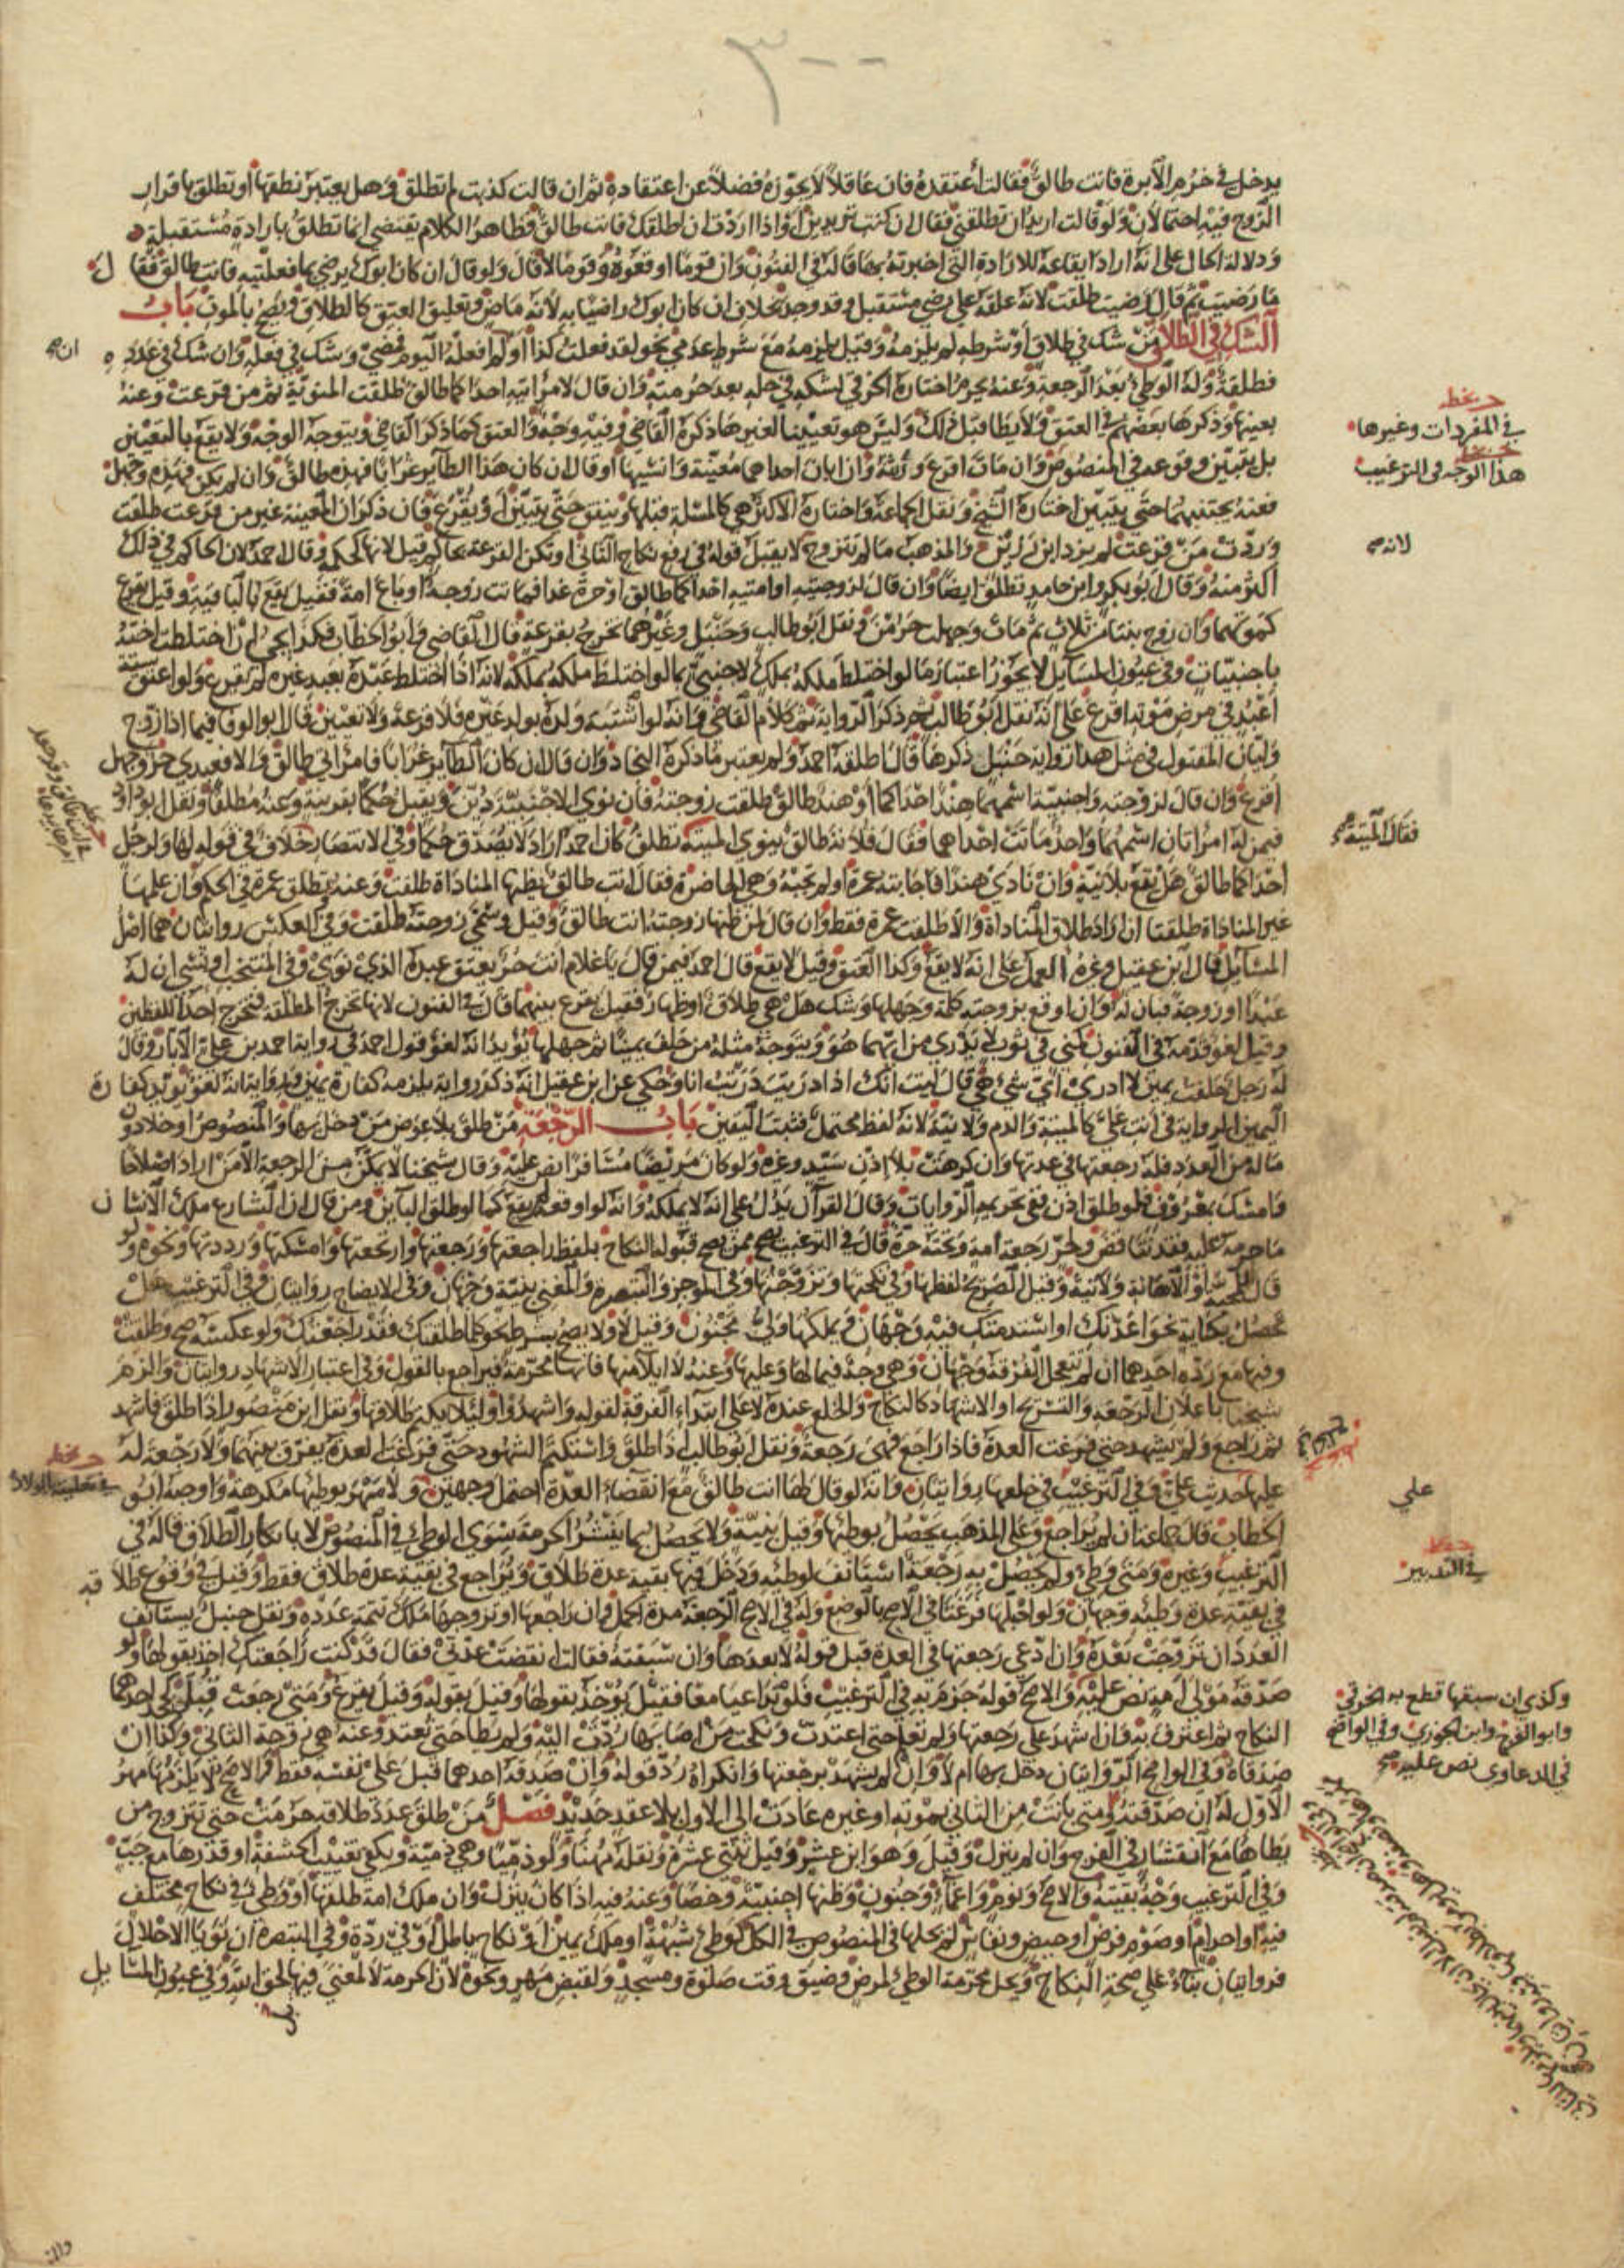 ٣٠٠
يدخل في خرم الأبرة فانت طالق فقالت أعتقده فان عاقلا لا يجوزه فضلا عن اعتقاده ثم ان قالت كذبت لم تطلق وهل يعتبر نطقها أو تطلق باقرار
الزوج فيه احتمالان ولو قالت اريد ان تطلقني فقال ان كنت تريدين او اذا اردت ان اطلقك فانت طالق فظاهر الكلام يقتضي انما تطلق بارادة مستقبلة
ودلالة الحال على انه اراد ايقاعه للارادة التي اخبرته بها قاله في الفنون وان قوما اوقعوه وقوما لا قال ولو قال ان كان ابوك يرضى بما فعلتيه فانت طالق فقال
ما رضيت ثم قال رضيت طلقت لانه علقه على رضي مستقبل وقد وجد بخلاف ان كان ابوك راضيا به لأنه ماض وتعليق العتق كالطلاق ويصح بالموت باب
الشك في الطلاق من شك في طلاق أو شرطه لم يلزمه وقيل يلزمه مع شرط عدمي نحو لقد فعلت كذا أو لم افعله اليوم فمضى وشك في فعله وان شك في عدده
فطلقة وله الوطئ بعد الرجعة وعنه يحرم اختاره الخرقي لشكه في حله بعد حرمته وان قال لامرأتيه احداكما طالق طلقت المنوية ثم من قرعت وعنه
يعينها وذكرها بعضهم في العتق ولا يطا قبل ذلك وليس هو تعيينا لغيرها ذكره القاضي وفيه وجه والعتق كما ذكر القاضي ويتوجه الوجه ولا يقع بالتعيين
بل يتبين وقوعه في المنصوص وان مات اقرع ورثته وان ابان احداهما معينة وانسيها او قال ان كان هذا الطائر غرابا فهذه طالق وان لم يكن فهذه وجهل
فعنه يجتنبهما حتى يتبين اختاره الشيخ ونقل الجماعة واختاره الاكثر هي كالمسئلة قبلها وينفق حتى يتبين أو يقرع فان ذكر ان المعينة غير من قرعت طلقت
وردت من قرعت لم يزد ابن رزين والمذهب ما لم تتزوج لا يقبل قوله في رفع نكاح الثاني او تكن القرعة بحاكم قيل لانها كحكم وقال احمد لان الحاكم في ذلك
اكثر منه وقال ابو بكر وابن حامد تطلق ايضا وان قال لزوجتيه او امتيه احداكما طالق او حرة غدا فماتت زوجة او باع امة فقيل يقع بالباقية وقيل يقرع
كموتهما وان زوج بنتا من ثلاث ثم مات وجهلت حرمن ونقل ابو طالب وحنبل وغيرهما تخرج بقرعة قال القاضي وأبو الخطاب فكذا يجيء ان اختلطت اخته
باجنبيات وفي عيون المسايل لا يجوز اعتبار ما لو اختلط ملكه بملك لاجنبي بما لو اختلط ملكه بملكه لانه اذا اختلط عبده بعبد غيره لم يقرع ولو اعتق ستة
أعبد في مرض موته اقرع على انه نقل ابو طالب ثم ذكر الرواية ثم كلام القاضي وانه لو اشتبه ولده بولد غيره فلا قرعة ولا تعيين قال ابو الوفا فيما اذا زوج
وليان المقبول في مثل هذا رواية حنبل ذكرها قال اطلقه احمد ولم يعتبر ما ذكره النجاد وان قال ان كان الطاير غرابا فامرأتي طالق والا فعبدي حر وجهل
أقرع وان قال لزوجته واجنبية اسمهما هند احداكما أو هند طالق طلقت زوجته فان نوى الاجنبية دين ويقبل حكما بقرينة وعنه مطلقا ونقل ابو داود
فيمن له امرأتان اسمهما واحد ماتت احداهما فقال فلانة طالق ينوي الميتة تطلق كان احمد اراد لا يصدق حكما وفي الانتصار خلاف في قوله لها ولرجل
احداكما طالق هل يقع بلا نية وان نادى هندا فاجابته عمرة او لم تجبه وهي الحاضرة فقال انت طالق يظنها المناداة طلقت وعنه وتطلق عمرة في الحكم وان علمها
غير المناداة طلقتا ان اراد طلاق المناداة والا طلقت عمرة فقط وان قال لمن ظنها زوجته انت طالق وقيل وسمى زوجته طلقت وفي العكس روايتان هما اصل
المسائل قال ابن عقيل وغيره العمل على انه لا يقع وكذا العتق وقيل لا يقع قال احمد فيمن قال يا غلام انت حر يعتق عبده الذي نوى وفي المنتخب او نسي ان له
عبدا او زوجة فبان له وان اوقع بزوجته كلمة وجهلها وشك هل هي طلاق او ظهار فقيل يقرع بينهما قال في الفنون لانها تخرج المطلقة فتخرج احد اللفظين
وقيل لغو قدمه في الفنون كمني في ثوب لا يدري من ايهما هو ويتوجه مثله من حلف يمينا ثم جهلها يؤيد انه لغو قول احمد في رواية احمد بن علي الابار وقال
له رجل حلفت بيمين لا ادري أي شيء هي قال ليت انك اذا دريت دريت انا وحكى عن ابن عقيل انه ذكر رواية يلزمه كفارة يمين ورواية انه لغو يؤيد كفارة
اليمين الرواية في انت علي كالميتة والدم ولا نية لانه لفظ محتمل فثبت اليقين باب الرجعة من طلق بلا عوض من دخل بها والمنصوص او خلا دون
ماله من العدد فله رجعتها في عدتها وان كرهت بلا اذن سيد وغيره ولو كان مريضا مسافرا نص عليه وقال شيخنا لا يمكن من الرجعة الا من اراد اصلاحا
وامسك بمعروف فلو طلق اذن ففي تحريمه الروايات وقال القرآن يدل على انه لا يملكه وانه لو اوقعه لم يقع كما لو طلق البائن ومن قال ان الشارع ملك الانسان
ما حرمه عليه فقد تناقض ولحر رجعة امة وتحته حرة قال في الترغيب يصح ممن يصح قبوله النكاح بلفظ راجعتها ورجعتها وارتجعتها وامسكتها ورددتها ونحوه ولو
قال للمحبة أو الاهانة ولا نية وقيل الصريح لفظها وفي نكحتها وتزوجتها وفي الموجز والتبصرة والمغني بنية وجهان وفي الايضاح روايتان وفي الترغيب هل
تحصل بكناية نحو اعدتك او استدمتك فيه وجهان ويملكها ولي مجنون وقيل لا ولا يصح بشرط نحو كلما طلقتك فقد راجعتك ولو عكسه صح وطلقت
وفيها مع ردة احدهما ان لم تتعجل الفرقة وجهان وهي زوجة فيما لها وعليها وعنه لا ايلا منها فانها محرمة فيراجع بالقول وفي اعتبار الاشهاد روايتان والزم
شيخنا باعلان الرجعة والتسريح او الاشهاد كالنكاح والخلع عنده لا على ابتداء الفرقة لقوله واشهدوا ولئلا يكتم طلاقها ونقل ابن منصور اذا طلق فاشهد
ثم راجع ولم يشهد حتى فرغت العدة فاذا راجع فهي رجعة ونقل ابو طالب اذا طلق واستكتم الشهود حتى فرغت العدة يفرق بينهما ولا رجعة له
عليها لحديث علي وفي الترغيب في خلعها روايتان وانه لو قال لها انت طالق مع انقضاء العدة احتمل وجهين ولا مهر بوطئها مكرهة واوجبه ابو
الخطاب قال جماعة ان لم يراجع وعلى المذهب يحصل بوطئها وقيل بنية ولا يحصل بما ينشر الحرمة سوى الوطئ في المنصوص لا بانكار الطلاق قاله في
الترغيب وغيره ومتى وطئ ولم يحصل به رجعة استأنفت لوطئه ودخل فيها بقية عدة طلاق ويراجع في بقية عدة طلاق فقط وقيل في وقوع طلاقه
في بقية عدة وطئه وجهان ولو احبلها فرغتا في الأصح بالوضع وله في الاصح الرجعة مدة الحمل فان راجعها او تزوجها ملك تتمة عدده ونقل حنبل يستأنف
العدد ان تزوجت بعده وان ادعى رجعتها في العدة قبل قوله لا بعدها وان سبقته فقالت انقضت عدتي فقال قد كنت راجعتك اخذ بقولها ولو
صدقه مولى امة نص عليه والاصح قوله جزم به في الترغيب فلو تداعيا معا فقيل يؤخذ بقولها وقيل بقوله وقيل يقرع ومتى رجعت قبل كجحد احدهما
النكاح ثم اعترف به وان اشهد على رجعتها ولم تعلم حتى اعتدت ونكحت من اصابها ردت اليه ولم يطا حتى تعتد وعنه هي زوجة الثاني وكذا ان
صدقاه وفي الواضح الروايتان دخل بها ام لا وان لم يشهد برجعتها وانكراه رد قوله وان صدقه احدهما قبل على نفسه فقط والاصح لا يلزمها مهر
الأول له ان صدقته ومتى بانت من الثاني بموته او غيره عادت الى الاول بلا عقد جديد فصل من طلق عدد طلاقه حرمت حتى تتزوج من
يطاها مع انتشار في الفرج وان لم ينزل وقيل وهو ابن عشر وقيل ثنتي عشرة ونقله مهنا ولو ذميا وهي ذمية ويكفي تغييب الحشفة او قدرها مع جب
وفي الترغيب وجه بقيته والاصح ونوم واغماء وجنون وظنها اجنبية وخصا وعنه فيه اذا كان ينزل وان ملك امة طلقها أو وطئ في نكاح مختلف
فيه او احرام او صوم فرض او حيض ونفاس لم يحلها في المنصوص في الكل كوطئ شبهة او ملك يمين او في نكاح باطل او في ردة وفي التبصرة ان نويا الاحلال
فروايتان بناء على صحة النكاح ويحل محرمة الوطئ لمرض وضيق وقت صلوة ومسجد ولقبض مهر ونحوه لان الحرمة لا لمعنى فيها لحق الله وفي عيون المسايل
في المفردات وغيرها
هذا الوجه في الترغيب
لانه
فقال الميتة
علي
في التدبير
وكذي ان سبقها قطع به الخرقي
وابو الفرج وابن الجوزي وفي الواضح
في الدعاوى نص عليه